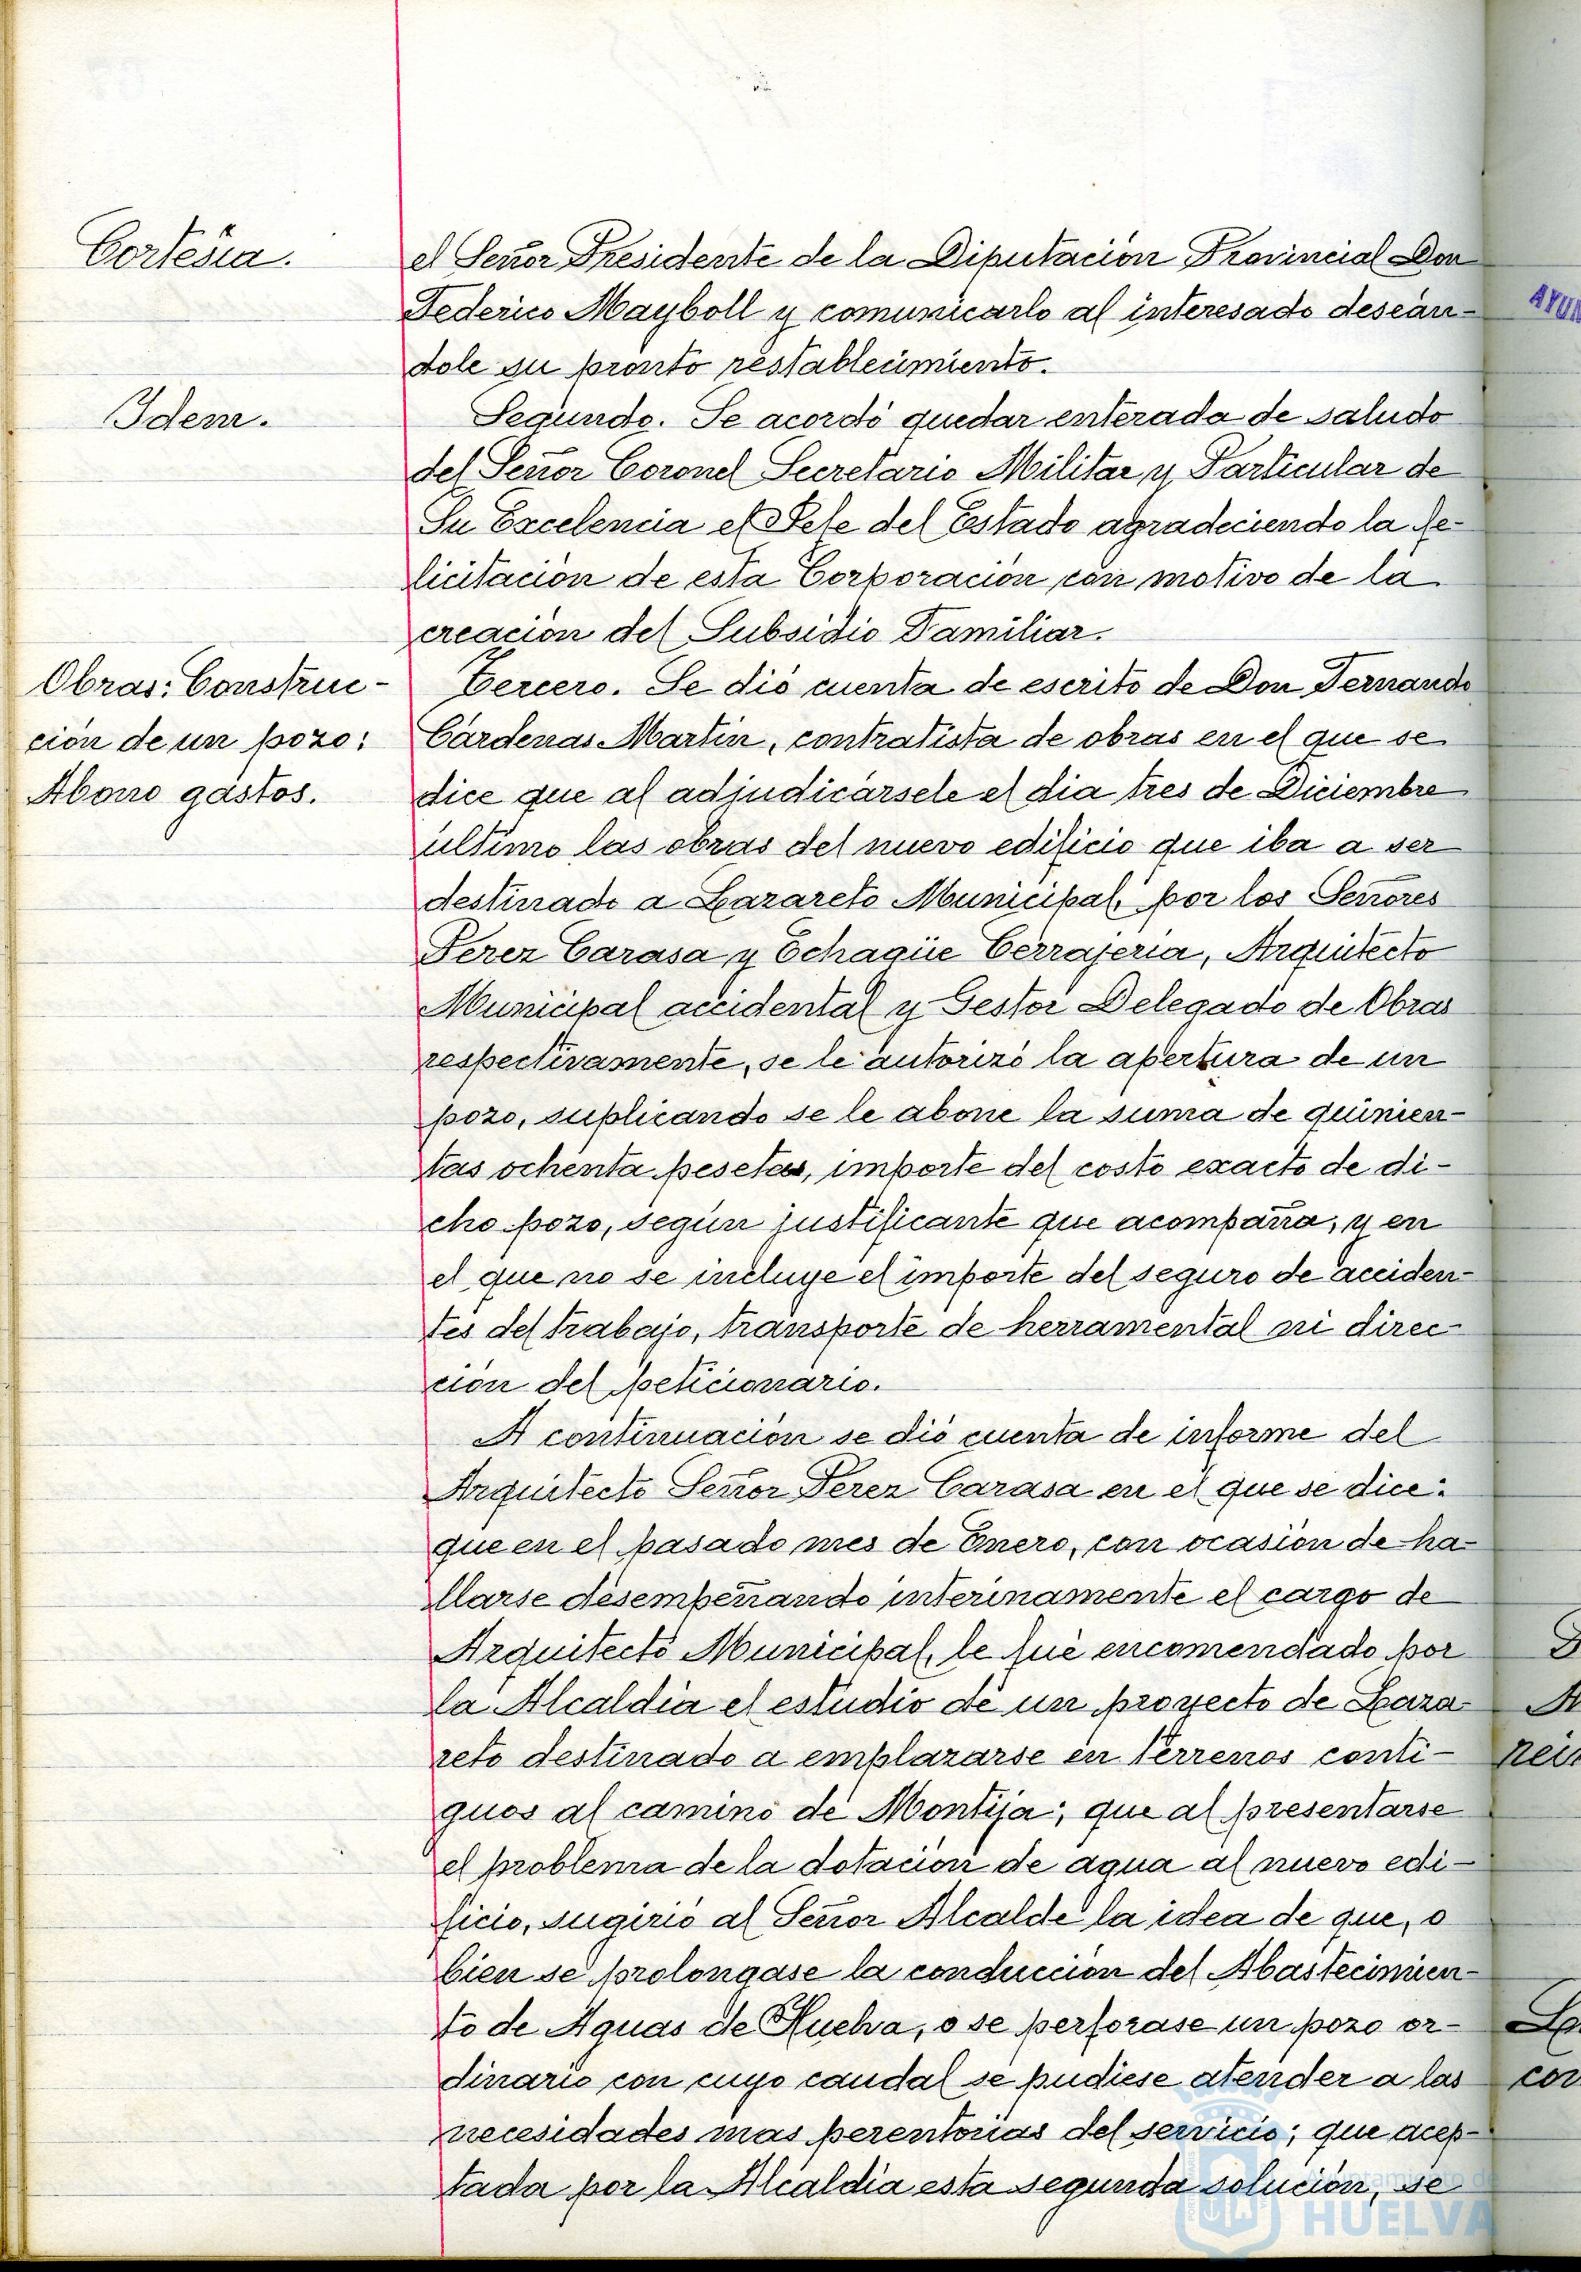 Cortesia.
el Señor Presidente de la Diputación Provincial Don
Federico Mayboll y comunicarlo al interesado deseán-
dole su pronto restablecimiento.
Idem.
Segundo. Se acordó quedar enterada de saludo
del Señor Coronel Secretario Militar y Particular de
Su Excelencia el Jefe del Estado agradeciendo la fe-
licitación de esta Corporación con motivo de la
creación del Subsidio Familiar.
Obras: Construc-
ción de un pozo:
Abono gastos.
Tercero. Se dió cuenta de escrito de Don Fernando
Cárdenas Martin, contratista de obras en el que se
dice que al adjudicársele el dia tres de Diciembre
último las obras del nuevo edificio que iba a ser
destinado a Lazareto Municipal, por los Señores
Perez Carasa y Echagüe Cerrajeria, Arquitecto
Municipal accidental y Gestor Delegado de Obras
respectivamente, se le autorizó la apertura de un
pozo, suplicando se le abone la suma de quinien-
tas ochenta pesetas, importe del costo exacto de di-
cho pozo, según justificante que acompaña, y en
el que no se incluye el importe del seguro de acciden-
tes del trabajo, transporte de herramental ni direc-
ción del peticionario.
A continuación se dió cuenta de informe del
Arquitecto Señor Perez Carasa en el que se dice:
que en el pasado mes de Enero, con ocasión de ha-
llarse desempeñando interinamente el cargo de
Arquitecto Municipal, le fué encomendado por
la Alcaldia el estudio de un proyecto de Laza-
reto destinado a emplazarse en terrenos conti-
guos al camino de Montija; que al presentarse
el problema de la dotación de agua al nuevo edi-
ficio, sugirió al Señor Alcalde la idea de que, o
bien se prolongase la conducción del Abastecimien-
to de Aguas de Huelva, o se perforase un pozo or-
dinario con cuyo caudal se pudiese atender a las
necesidades mas perentorias del servicio; que acep-
tada por la Alcaldia esta segunda solución, se
AYUN
Ayuntamiento de
HUELVA